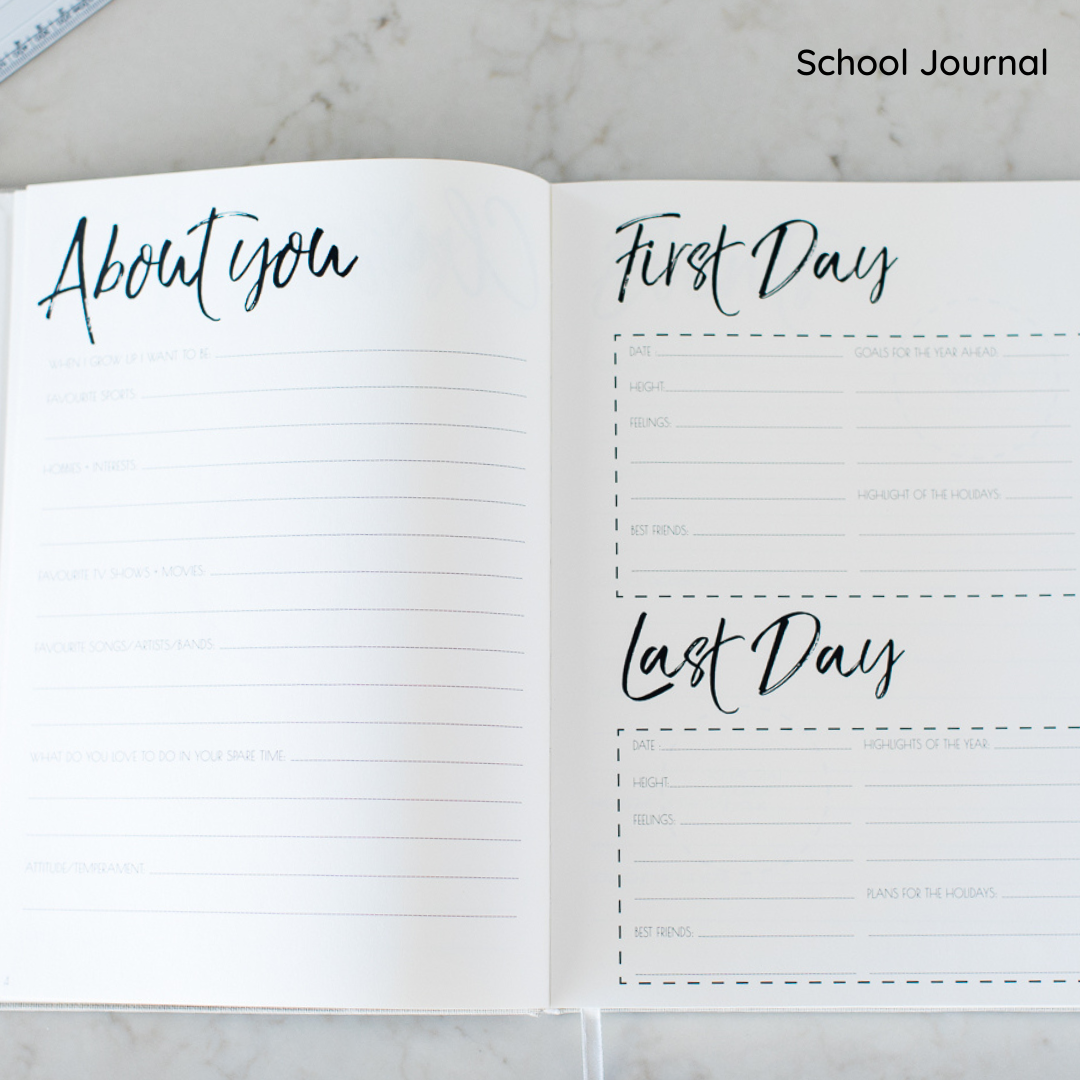 School Journal
About you
WHEN I GROW UP I WANT TO BE:
FAVOURITE SPORTS:
HOBBIES + INTERESTS:
FAVOURITE TV SHOWS + MOVIES:
FAVOURITE SONGS/ARTISTS/BANDS:
WHAT DO YOU LOVE TO DO IN YOUR SPARE TIME:
ATTITUDE/TEMPERAMENT:
4
First Day
DATE: GOALS FOR THE YEAR AHEAD:
HEIGHT:
FEELINGS:
HIGHLIGHT OF THE HOLIDAYS:
BEST FRIENDS:
Last Day
DATE: HIGHLIGHTS OF THE YEAR:
HEIGHT:
FEELINGS:
PLANS FOR THE HOLIDAYS:
BEST FRIENDS: